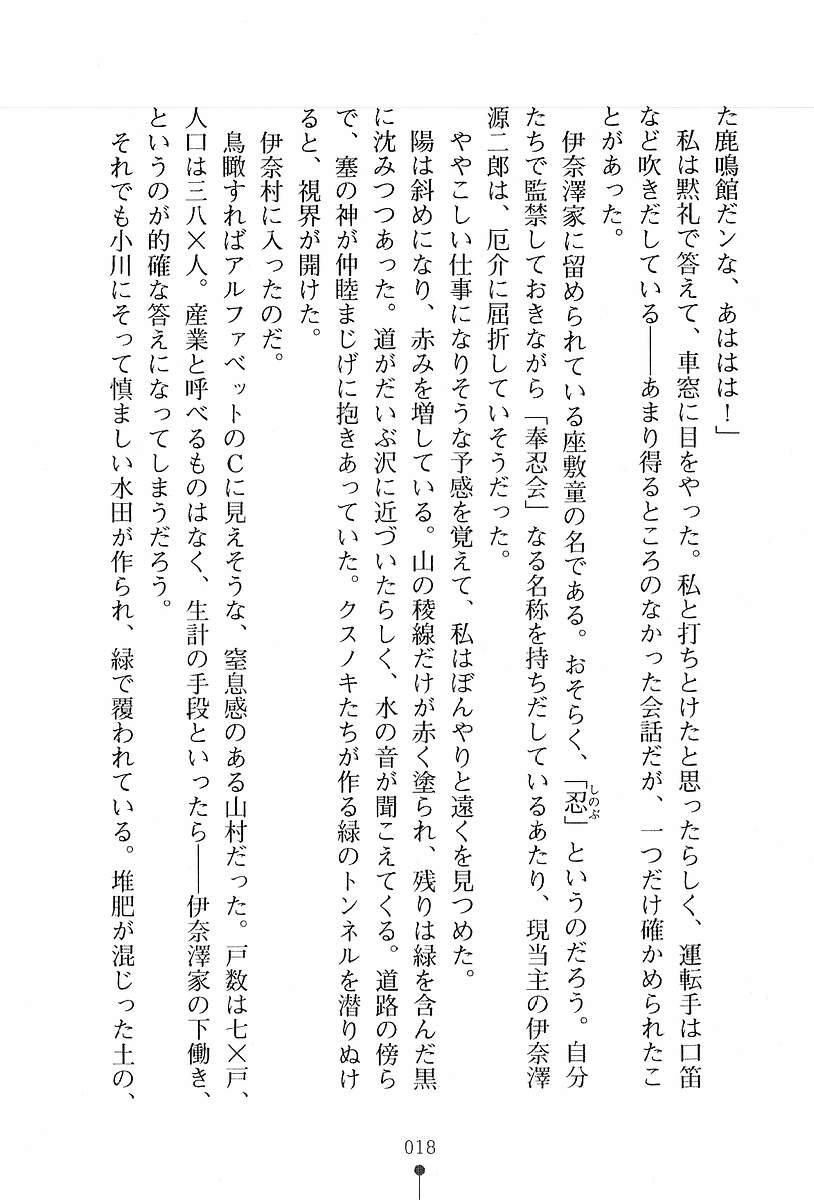 た鹿鳴館だンな、あははは！」
　私は黙礼で答えて、車窓に目をやった。私と打ちとけたと思ったらしく、運転手は口笛
など吹きだしている――あまり得るところのなかった会話だが、一つだけ確かめられたこ
とがあった。
　伊奈澤家に留められている座敷童の名である。おそらく、「忍」というのだろう。自分
しのぶ
たちで監禁しておきながら「奉忍会」なる名称を持ちだしているあたり、現当主の伊奈澤
源二郎は、厄介に屈折していそうだった。
　ややこしい仕事になりそうな予感を覚えて、私はぼんやりと遠くを見つめた。
　陽は斜めになり、赤みを増している。山の稜線だけが赤く塗られ、残りは緑を含んだ黒
に沈みつつあった。道がだいぶ沢に近づいたらしく、水の音が聞こえてくる。道路の傍ら
で、塞の神が仲睦まじげに抱きあっていた。クスノキたちが作る緑のトンネルを潜りぬけ
ると、視界が開けた。
　伊奈村に入ったのだ。
　鳥瞰すればアルファベットのCに見えそうな、窒息感のある山村だった。戸数は七×戸、
人口は三八×人。産業と呼べるものはなく、生計の手段といったら――伊奈澤家の下働き、
というのが的確な答えになってしまうだろう。
　それでも小川にそって慎ましい水田が作られ、緑で覆われている。堆肥が混じった土の、
018